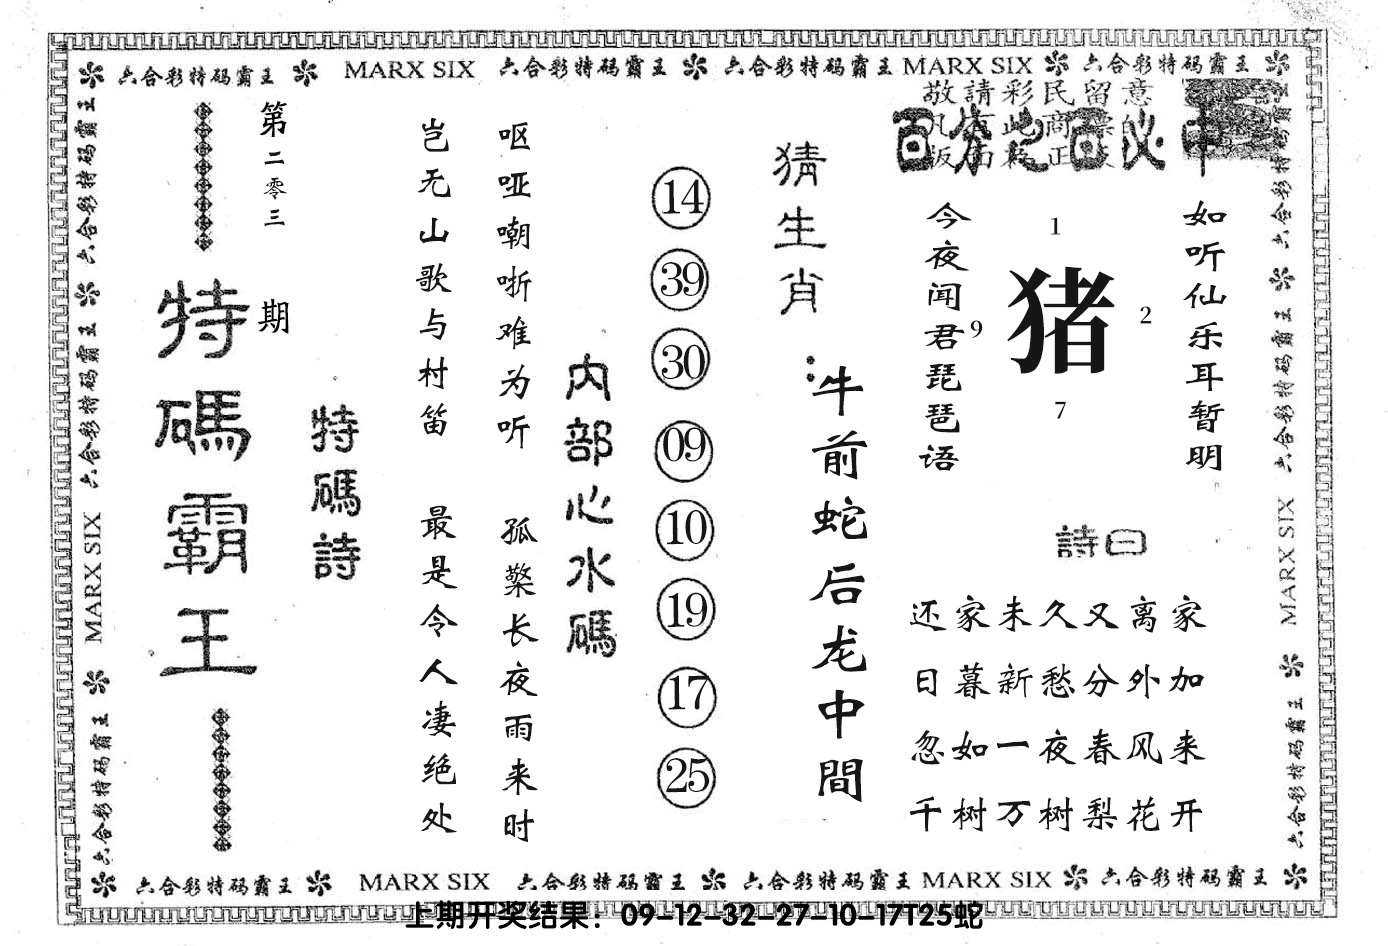 六合彩特码霸王 MARX SIX 六合彩特码霸王 六合彩特码霸王 MARX SIX 六合彩特码霸王
敬請彩民留意
百分之百必中
如听仙乐耳暂明
今夜闻君琵琶语
1
9
猪
2
7
詩曰
还家未久又离家
日暮新愁分外加
忽如一夜春风来
千树万树梨花开
猜生肖：
牛前蛇后龙中間
14
39
30
09
10
19
17
25
内部心水碼
呕哑嘲哳难为听
孤檠长夜雨来时
岂无山歌与村笛
最是令人凄绝处
特碼詩
第二零三期
特碼霸王
六合彩特码霸王 六合彩特码霸王 MARX SIX 六合彩特码霸王
六合彩特码霸王 六合彩特码霸王 MARX SIX 六合彩特码霸王
六合彩特码霸王 MARX SIX 六合彩特码霸王 六合彩特码霸王 MARX SIX 六合彩特码霸王
上期开奖结果：09-12-32-27-10-17T25蛇